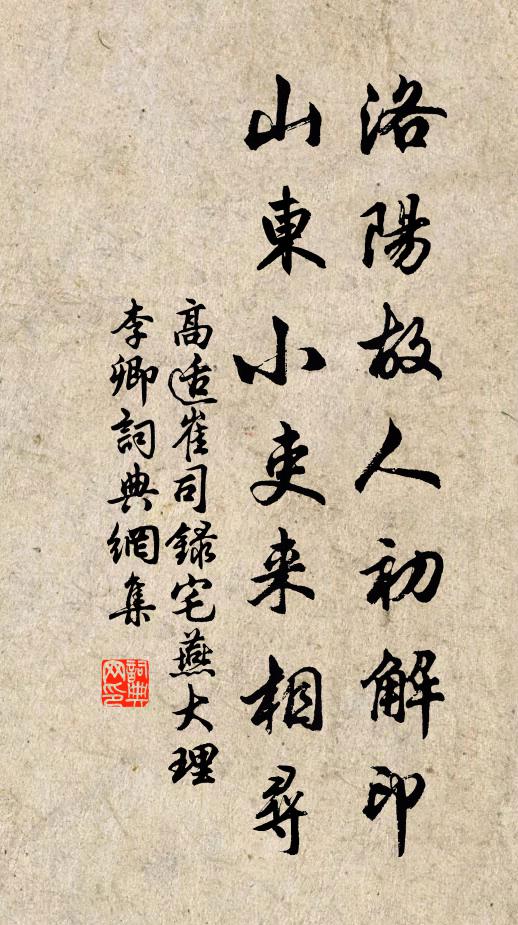 洛陽故人初解印
山東小吏来相尋
高适崔司錄宅燕大理
李卿詞典網集
詞典網印